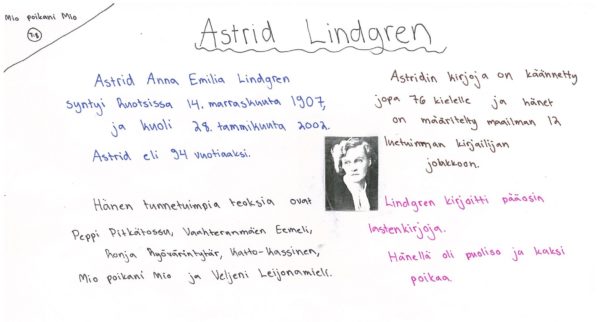 Mio poikani Mio
7.B
Astrid Lindgren
Astrid Anna Emilia Lindgren
syntyi Ruotsissa 14. marraskuuta 1907,
ja kuoli 28. tammikuuta 2002.
Astrid eli 94 vuotiaaksi.
Astridin kirjoja on käännetty
jopa 76 kielelle ja hänet
on määritelty maailman 12
luetuimman kirjailijan
joukkoon.
Hänen tunnetuimpia teoksia ovat
Peppi Pitkätossu, Vaahteranmäen Eemeli,
Ronja Ryövärintytär, Katto-Kassinen,
Mio poikani Mio ja Veljeni Leijonamieli.
Lindgren kirjoitti pääosin
lastenkirjoja.
Hänellä oli puoliso ja kaksi
poikaa.